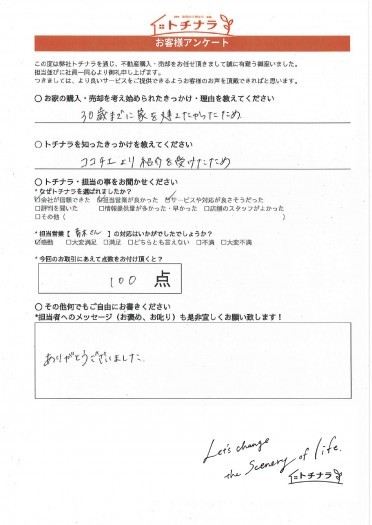 トチナラ
お客様アンケート
この度は弊社トチナラを通じ、不動産購入・売却をお任せ頂きまして誠に有難う御座いました。
担当並びに社員一同心より御礼申し上げます。
つきましては、より良いサービスをご提供できるようお客様のお声を頂戴できればと思います。
〇 お家の購入・売却を考え始められたきっかけ・理由を教えてください
30歳までに家を建てたかったため
〇 トチナラを知ったきっかけを教えてください
ココチエより紹介を受けたため
〇 トチナラ・担当の事をお聞かせください
*なぜトチナラを選ばれましたか?
☑会社が信頼できた ☑担当営業が良かった ☑サービスや対応が良さそうだった
□評判を聞いた □情報量が多かった・早かった □店舗のスタッフがよかった
□その他( )
*担当営業【青木さん】の対応はいかがでしたでしょうか?
☑感動 □大変満足 □満足 □どちらとも言えない □不満 □大変不満
*今回のお取引にあえて点数をお付け頂くと?
100 点
〇 その他何でもご自由にお書きください
*担当者へのメッセージ(お褒め、お叱り)も是非宜しくお願い致します!
ありがとうございました。
Let's change
the Scenery of life.
トチナラ